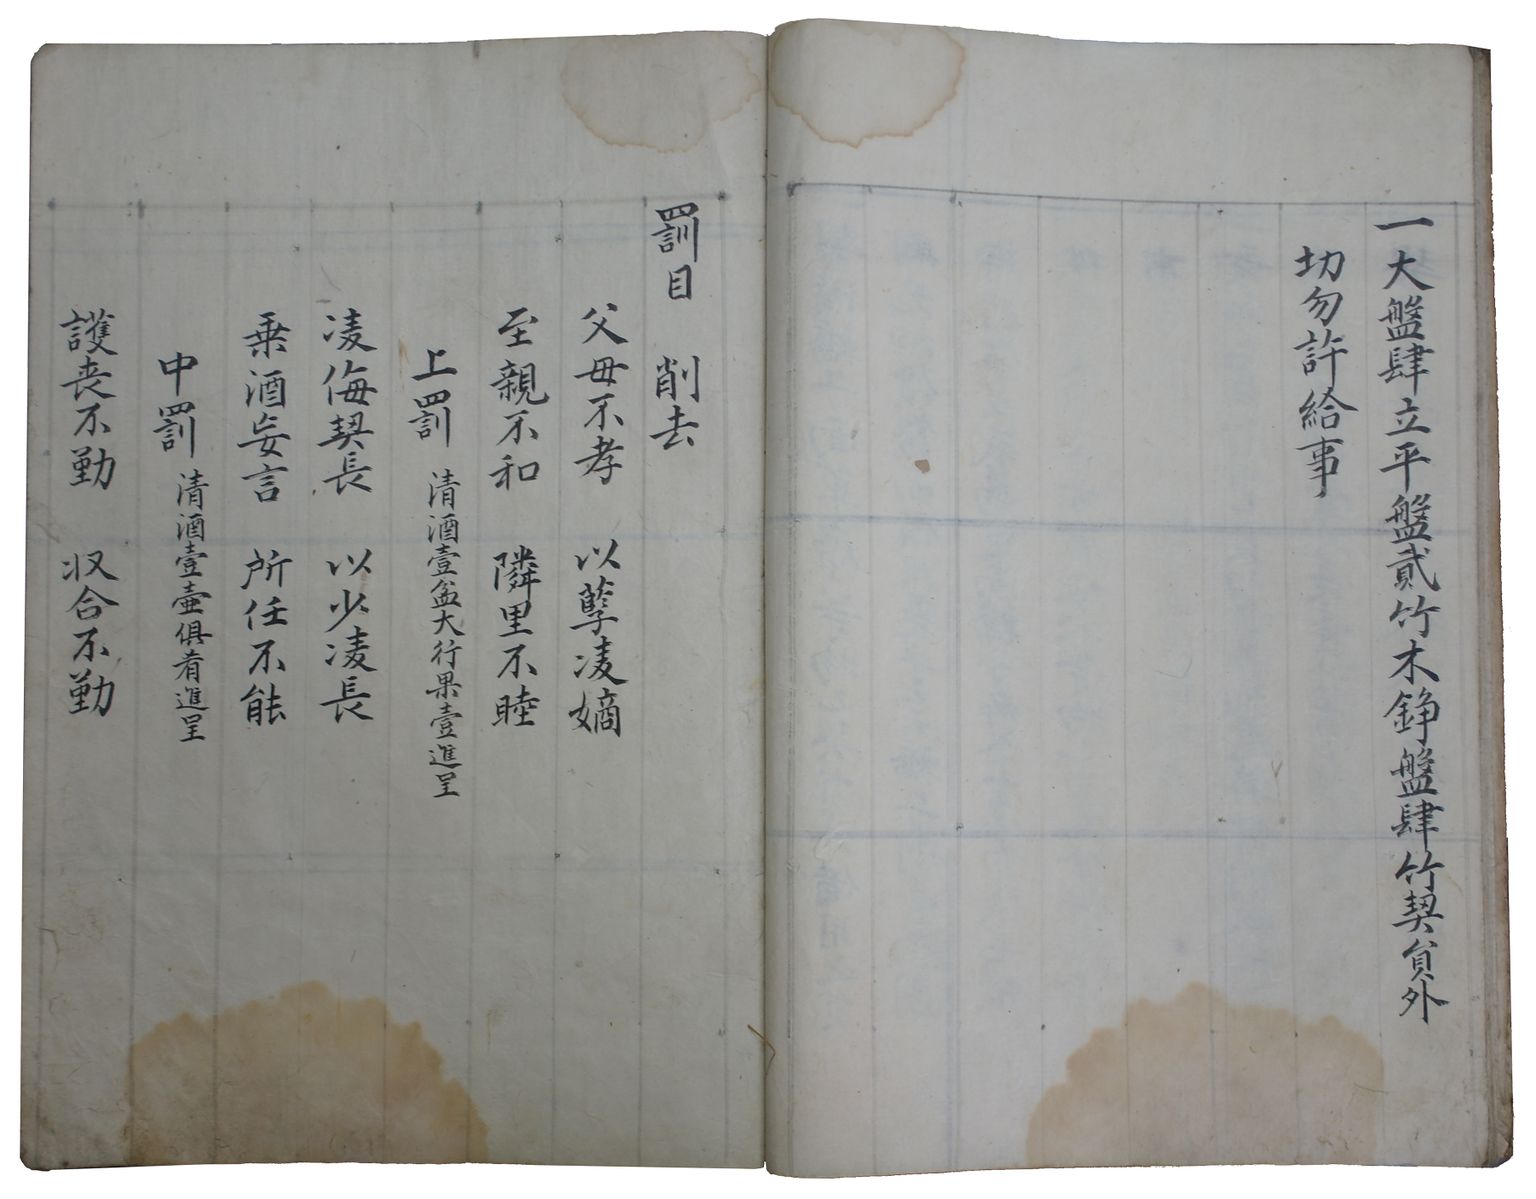 一大盤肆立平盤貳竹木錚盤肆竹契貟外
切勿許給事
罰目 削去
父母不孝 以孽凌嫡
至親不和 隣里不睦
上罰 清酒壹盆大行果壹進呈
凌侮契長 以少凌長
乗酒妄言 所任不能
中罰 清酒壹壷俱肴進呈
護喪不勤 収合不勤